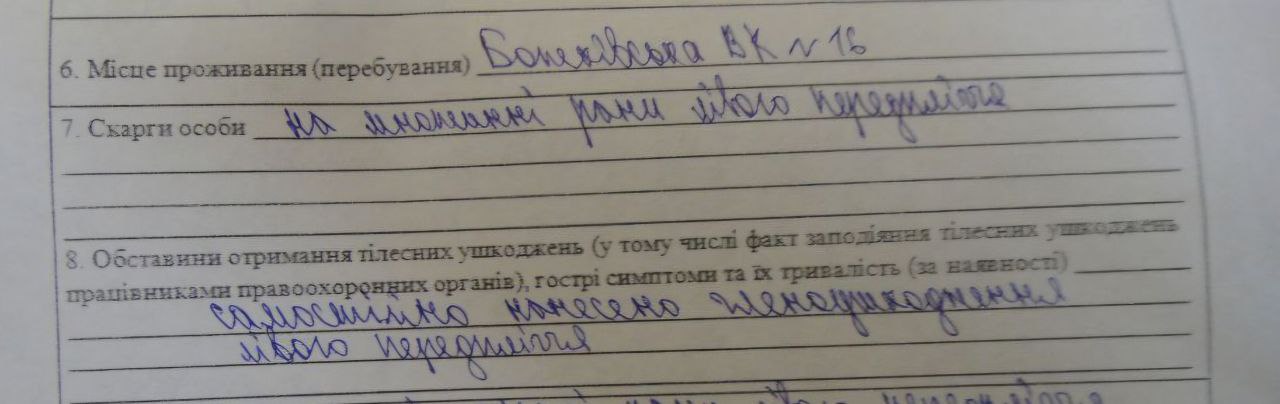 6. Місце проживання (перебування) ВК №16
7. Скарги особи на множинні рани лівого передпліччя
8. Обставини отримання тілесних ушкоджень (у тому числі факт заподіяння тілесних ушкоджень
працівниками правоохоронних органів), гострі симптоми та їх тривалість (за наявності)
самостійно нанесено членоушкодження
лівого передпліччя
рани лівого передпліччя